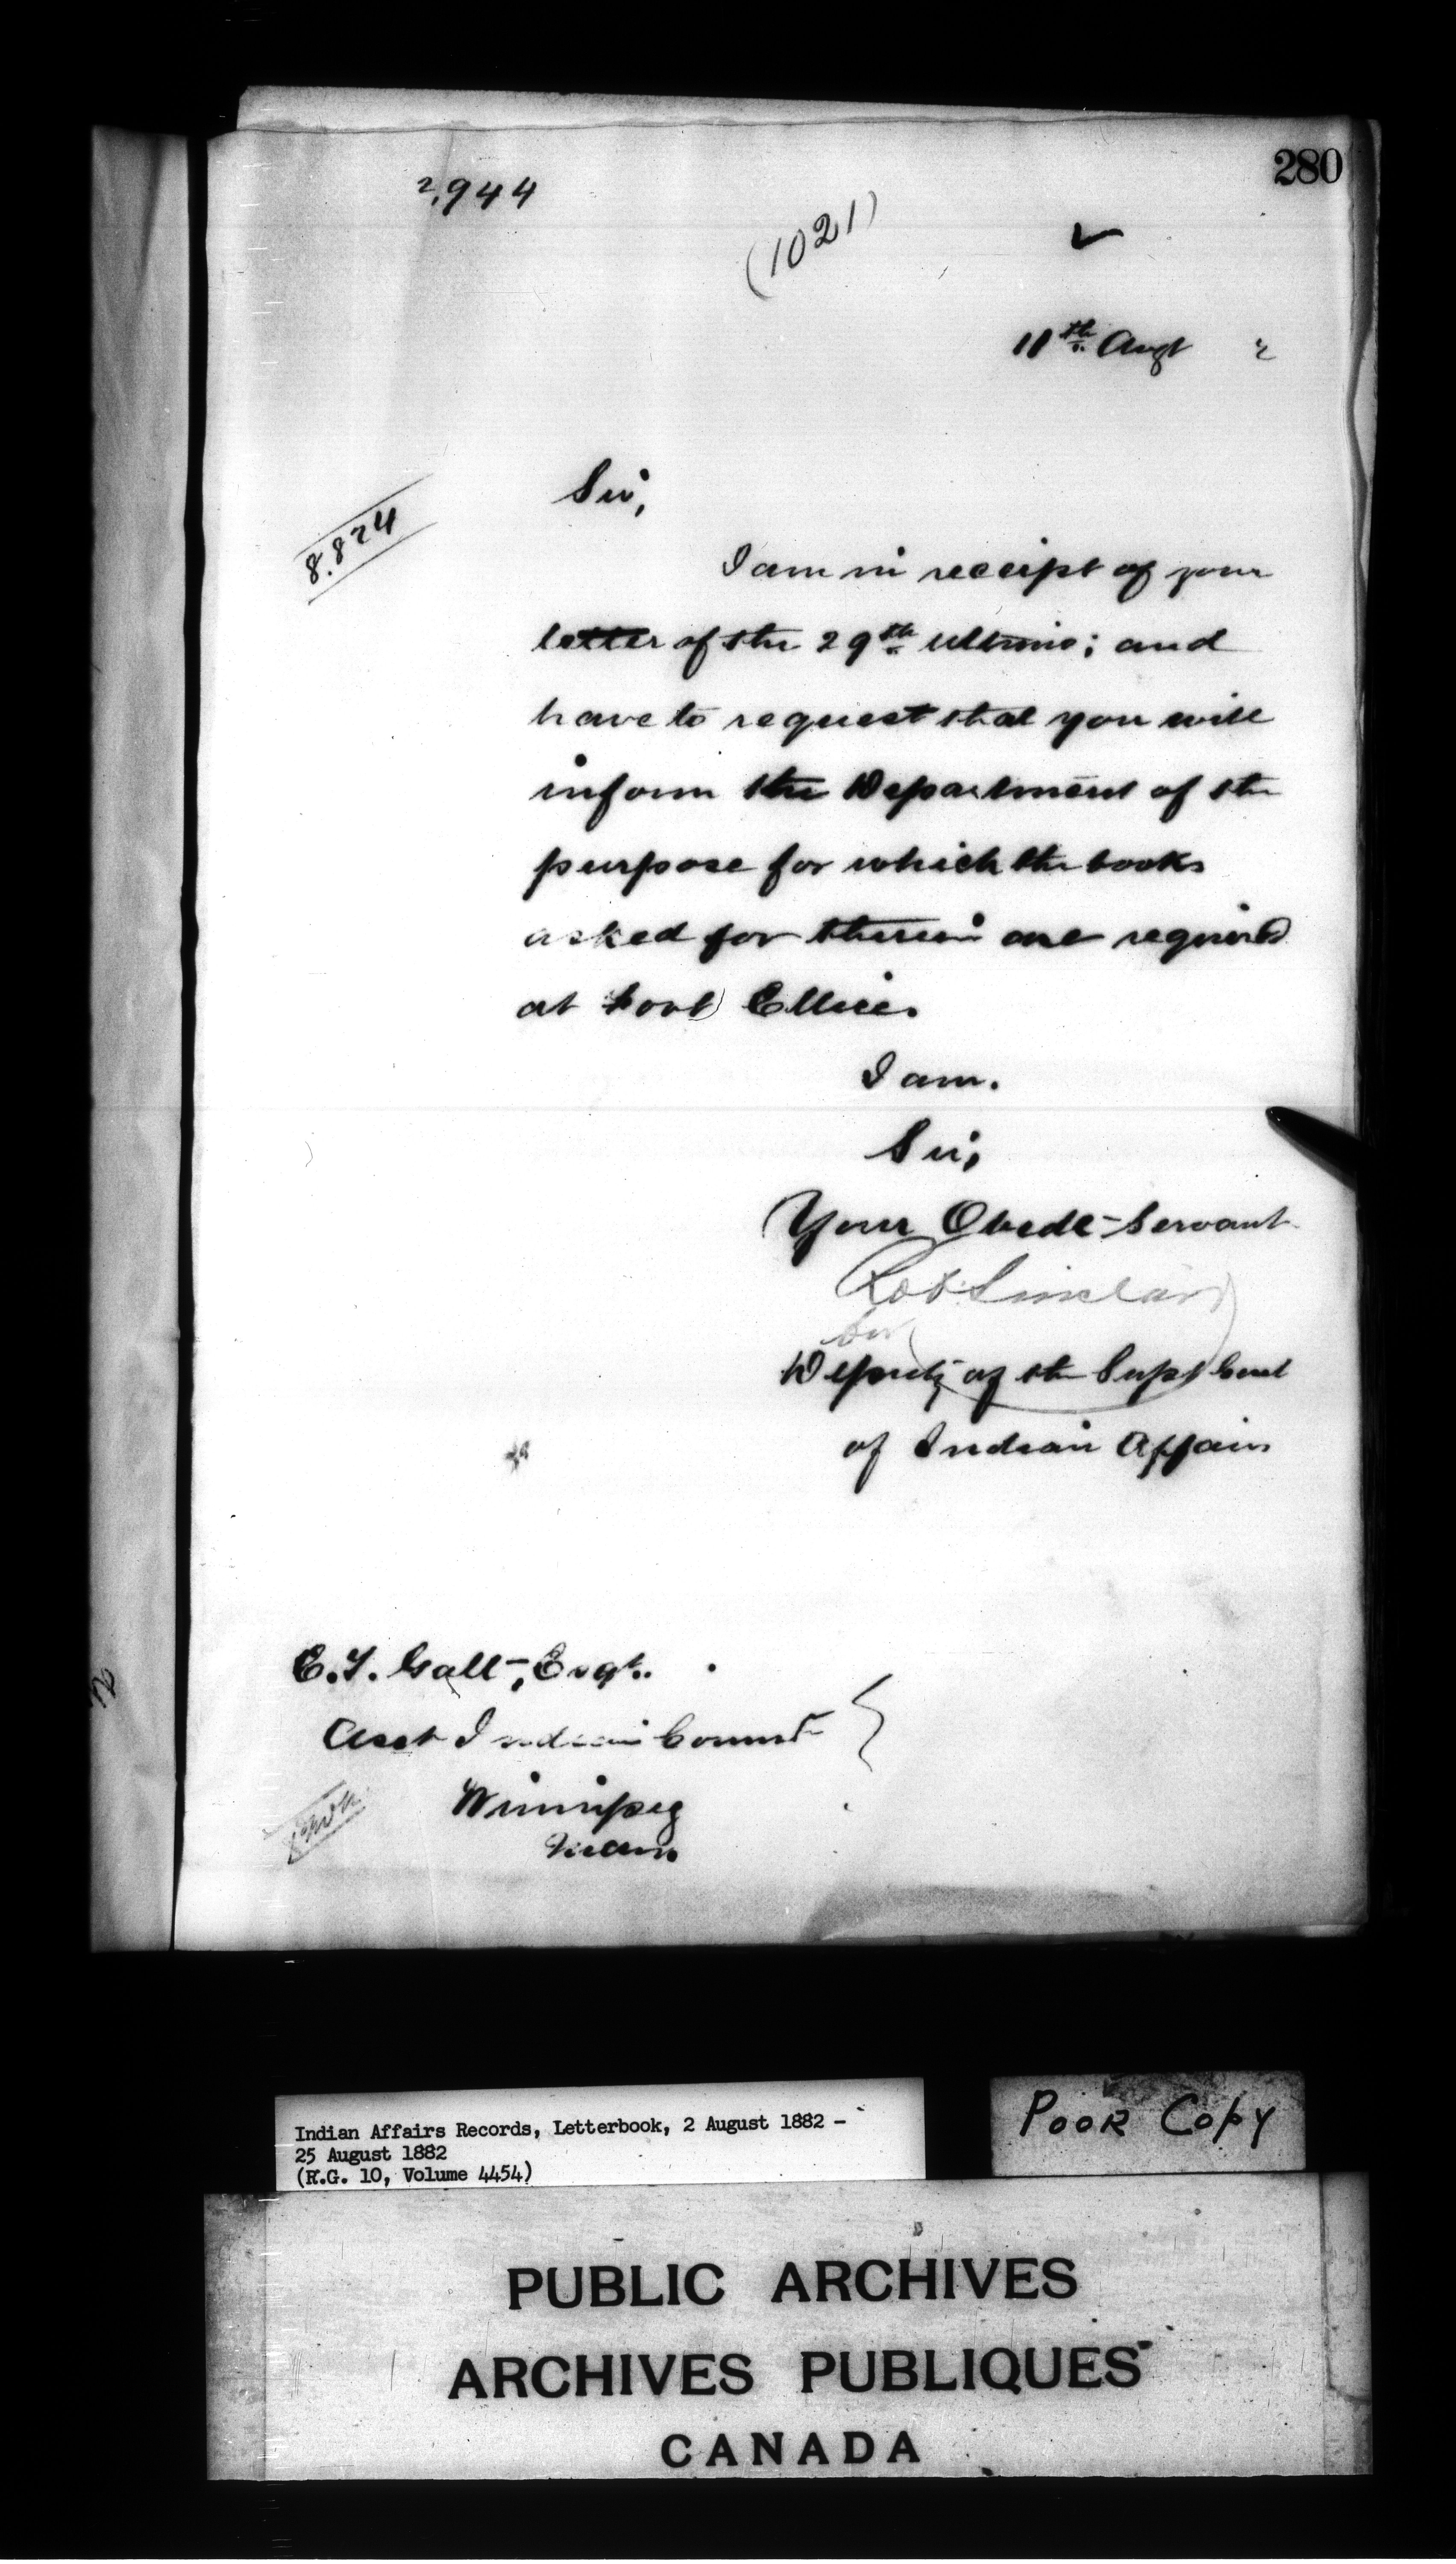 280
2,944
(1021)
11th Augt 2
8.824
Sir,
I am in receipt of your
letter of the 29th ultimo; and
have to request that you will
inform the Department of the
purpose for which the books
asked for therein are required
at Fort Ellice.
I am.
Sir,
Your Obedt Servant
Rob Sinclair
for
Deputy of the Supt Genl
of Indian Affairs
E.T. Galt, Esqr.
Asst Indian Commr
Winnipeg
Man.
Indian Affairs Records, Letterbook, 2 August 1882 -
25 August 1882
(R.G. 10, Volume 4454)
POOR COPY
PUBLIC ARCHIVES
ARCHIVES PUBLIQUES
CANADA